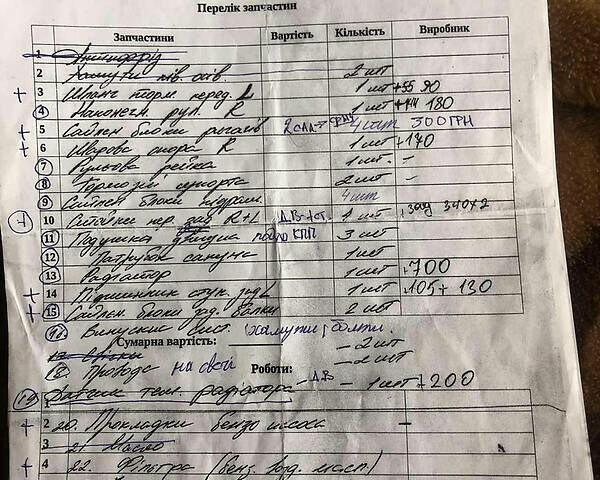 Перелік запчастин
Запчастини Вартість Кількість Виробник
1 Антидаріз
2 Хамути пів. осів. 2 шт
+ 3 Шланг торм. перед. L 1 шт +55 90
4 Наконечн. рул. R 1 шт 180
+ 5 Сайлен блоки рычагів 4 шт 300ГРН
+ 6 Шарова опора R 1 шт +170
7 Рульова рейка 1 шт. -
8 Гормозні супорта 2 шт -
9 Сайлен блоки підрам. 4 шт
+ 10 Стойки пер. зад R+L 4 шт , зад 340х2
11 Подушка двигуна КПП 3 шт
12 Патрубок сапуна 1 шт
13 Радіатор 1 шт +700
+ 14 Підшипник ступ. зад L 1 шт +105+ 130
+ 15 Сайлен. блоки зад. балки 2 шт
16. Випускна сист. хамути, болти.
Сумарна вартість: - 2 шт
18. Провода на свічі - 2 шт
Роботи:
19 Датчик темп. радіатора - ДВ - 1 шт +200
1
+ 2 20. Прокладки бензо насоса -
3 21. Масло
+ 4 22. Фільтра (бенз. возд. масл)